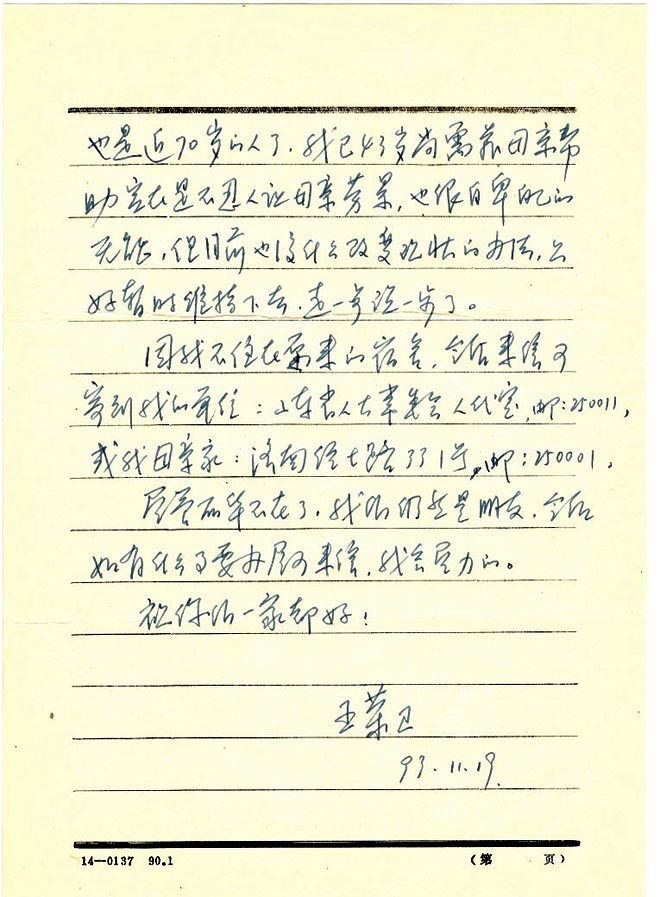 也是近70岁的人了，我已43岁尚需靠母亲帮
助实在是不忍人让母亲劳累，也很自卑自己的
无能，但目前也没什么改变现状的办法，只
好暂时维持下去，走一步说一步了。
因我不住在原来的宿舍，今后来信可
寄到我的单位：山东省人大常委会人代室，邮：250011，
或我母亲家：济南经七路331号，邮：250001，
尽管不在了，我们仍然是朋友，今后
如有什么事要办尽可来信，我会尽力的。
祝你们一家都好！
王荣卫
93.11.19.
14—0137 90.1
（第 页）